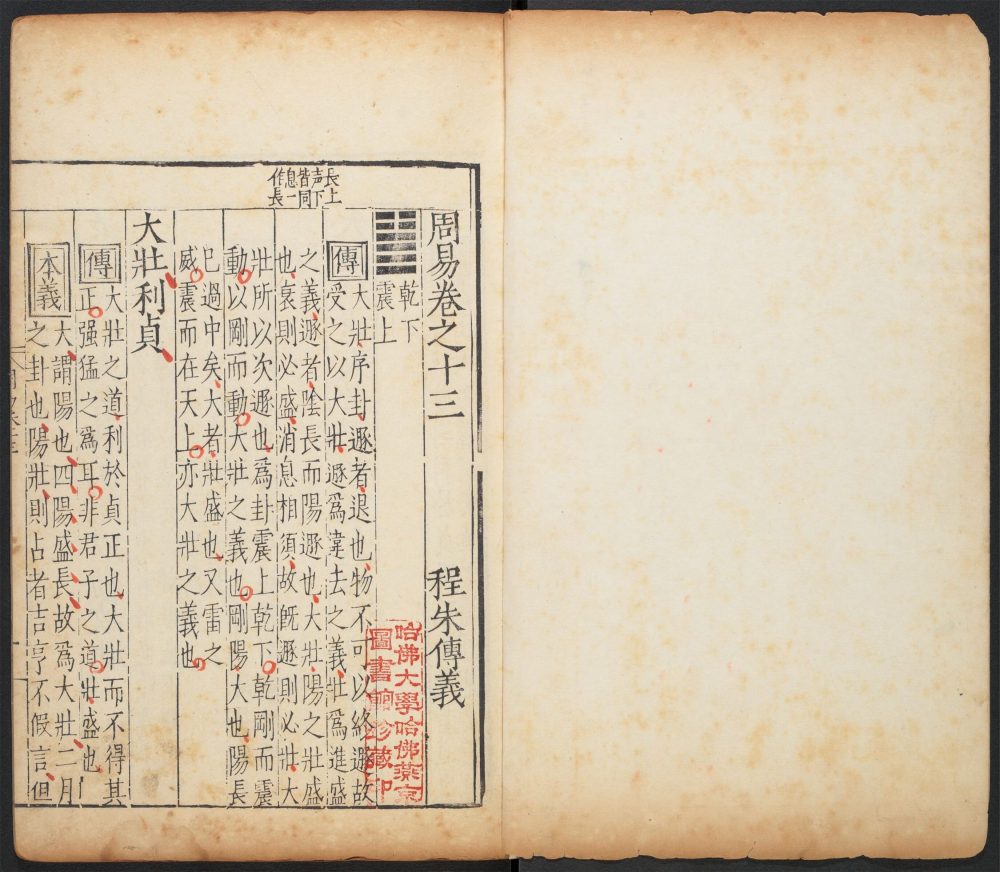 長上
声下
皆同
息一
作長
周易卷之十三 程朱傳義
乾下
震上
傳 大壯序卦遯者退也物不可以終遯故
受之以大壯遯爲違去之義壯爲進盛
之義遯者陰長而陽遯也大壯陽之壯盛
也衰則必盛消息相須故旣遯則必壯大
壯所以次遯也爲卦震上乾下乾剛而震
動以剛而動大壯之義也剛陽大也陽長
已過中矣大者壯盛也又雷之
威震而在天上亦大壯之義也
大壯利貞
傳 大壯之道利於貞正也大壯而不得其
正强猛之爲耳非君子之道壯盛也
本義 大謂陽也四陽盛長故爲大壯二月
之卦也陽壯則占者吉亨不假言但
哈佛大學哈佛燕京
圖書館珍藏印